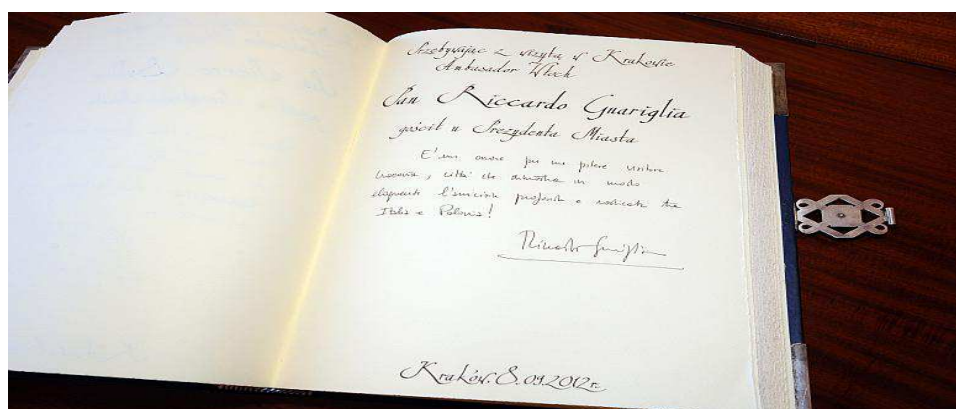 Przebywając z wizytą w Krakowie
Ambasador Włoch
Pan Riccardo Guariglia
gościł u Prezydenta Miasta
E' un onore per me potere visitare
Cracovia, città che dimostra in modo
eloquente l'amicizia profonda e radicata tra
Italia e Polonia!
Riccardo Guariglia
Kraków. 8.09.2012r.